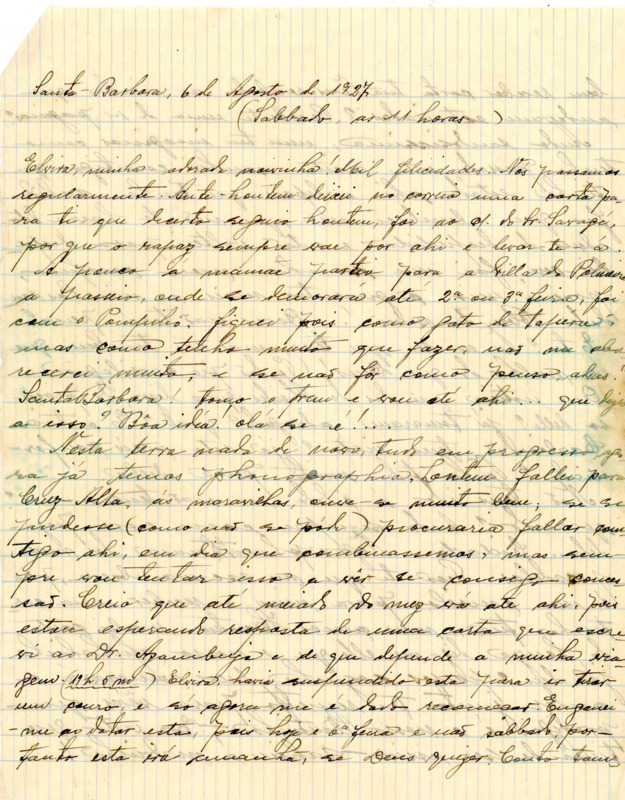 Santa Barbara, 6 de Agosto de 1927
(Sabbado, as 11 horas)
Elvira, minha adorada noivinha! Mil felicidades. Nós passamos
regularmente. Ante-hontem deixei no correio uma carta pa-
ra ti que decerto seguio hontem, foi ao do Sr. Savagé,
por que o rapaz sempre vae por ahi e levar-te-a.
A pouco a mamãe partio para a Villa da Palmeira
a passeio, onde se demorará até 2ª ou 3ª feira, foi
com o Pompilio. fiquei pois como gato de tapera
mas como tenho muito que fazer, não me abor-
recerei muito, e se não fôr como penso, adeus!
Santa Barbara! tomo o trem e vou até ahi... que dizes
a isso? Bôa idéa. olá se é!...
Nesta terra nada de novo, tudo em progresso, ago-
ra já temos phonographia. hontem fallei para
Cruz Alta, ás maravilhas, ouve-se muito bem; se se
pudesse (como não se pode) procuraria fallar com-
tigo ahi, em dia que combinassemos, mas sem-
pre vou tentar isso a vêr se consigo conces
são. Creio que até meiado do mez irei ate ahi, pois
estou esperando resposta de uma carta que escre
vi ao Dr. Azambuja e, de que depende a minha via-
gem. (19 h 5 m) Elvira, havia suspendido esta para ir tirar
um couro, e so agora me é dado recomeçar. Enganei
-me ao datar esta, pois hoje é 6ª feira e não sabbado, por-
tanto esta irá amanhã, se Deus quizer. Conto tam